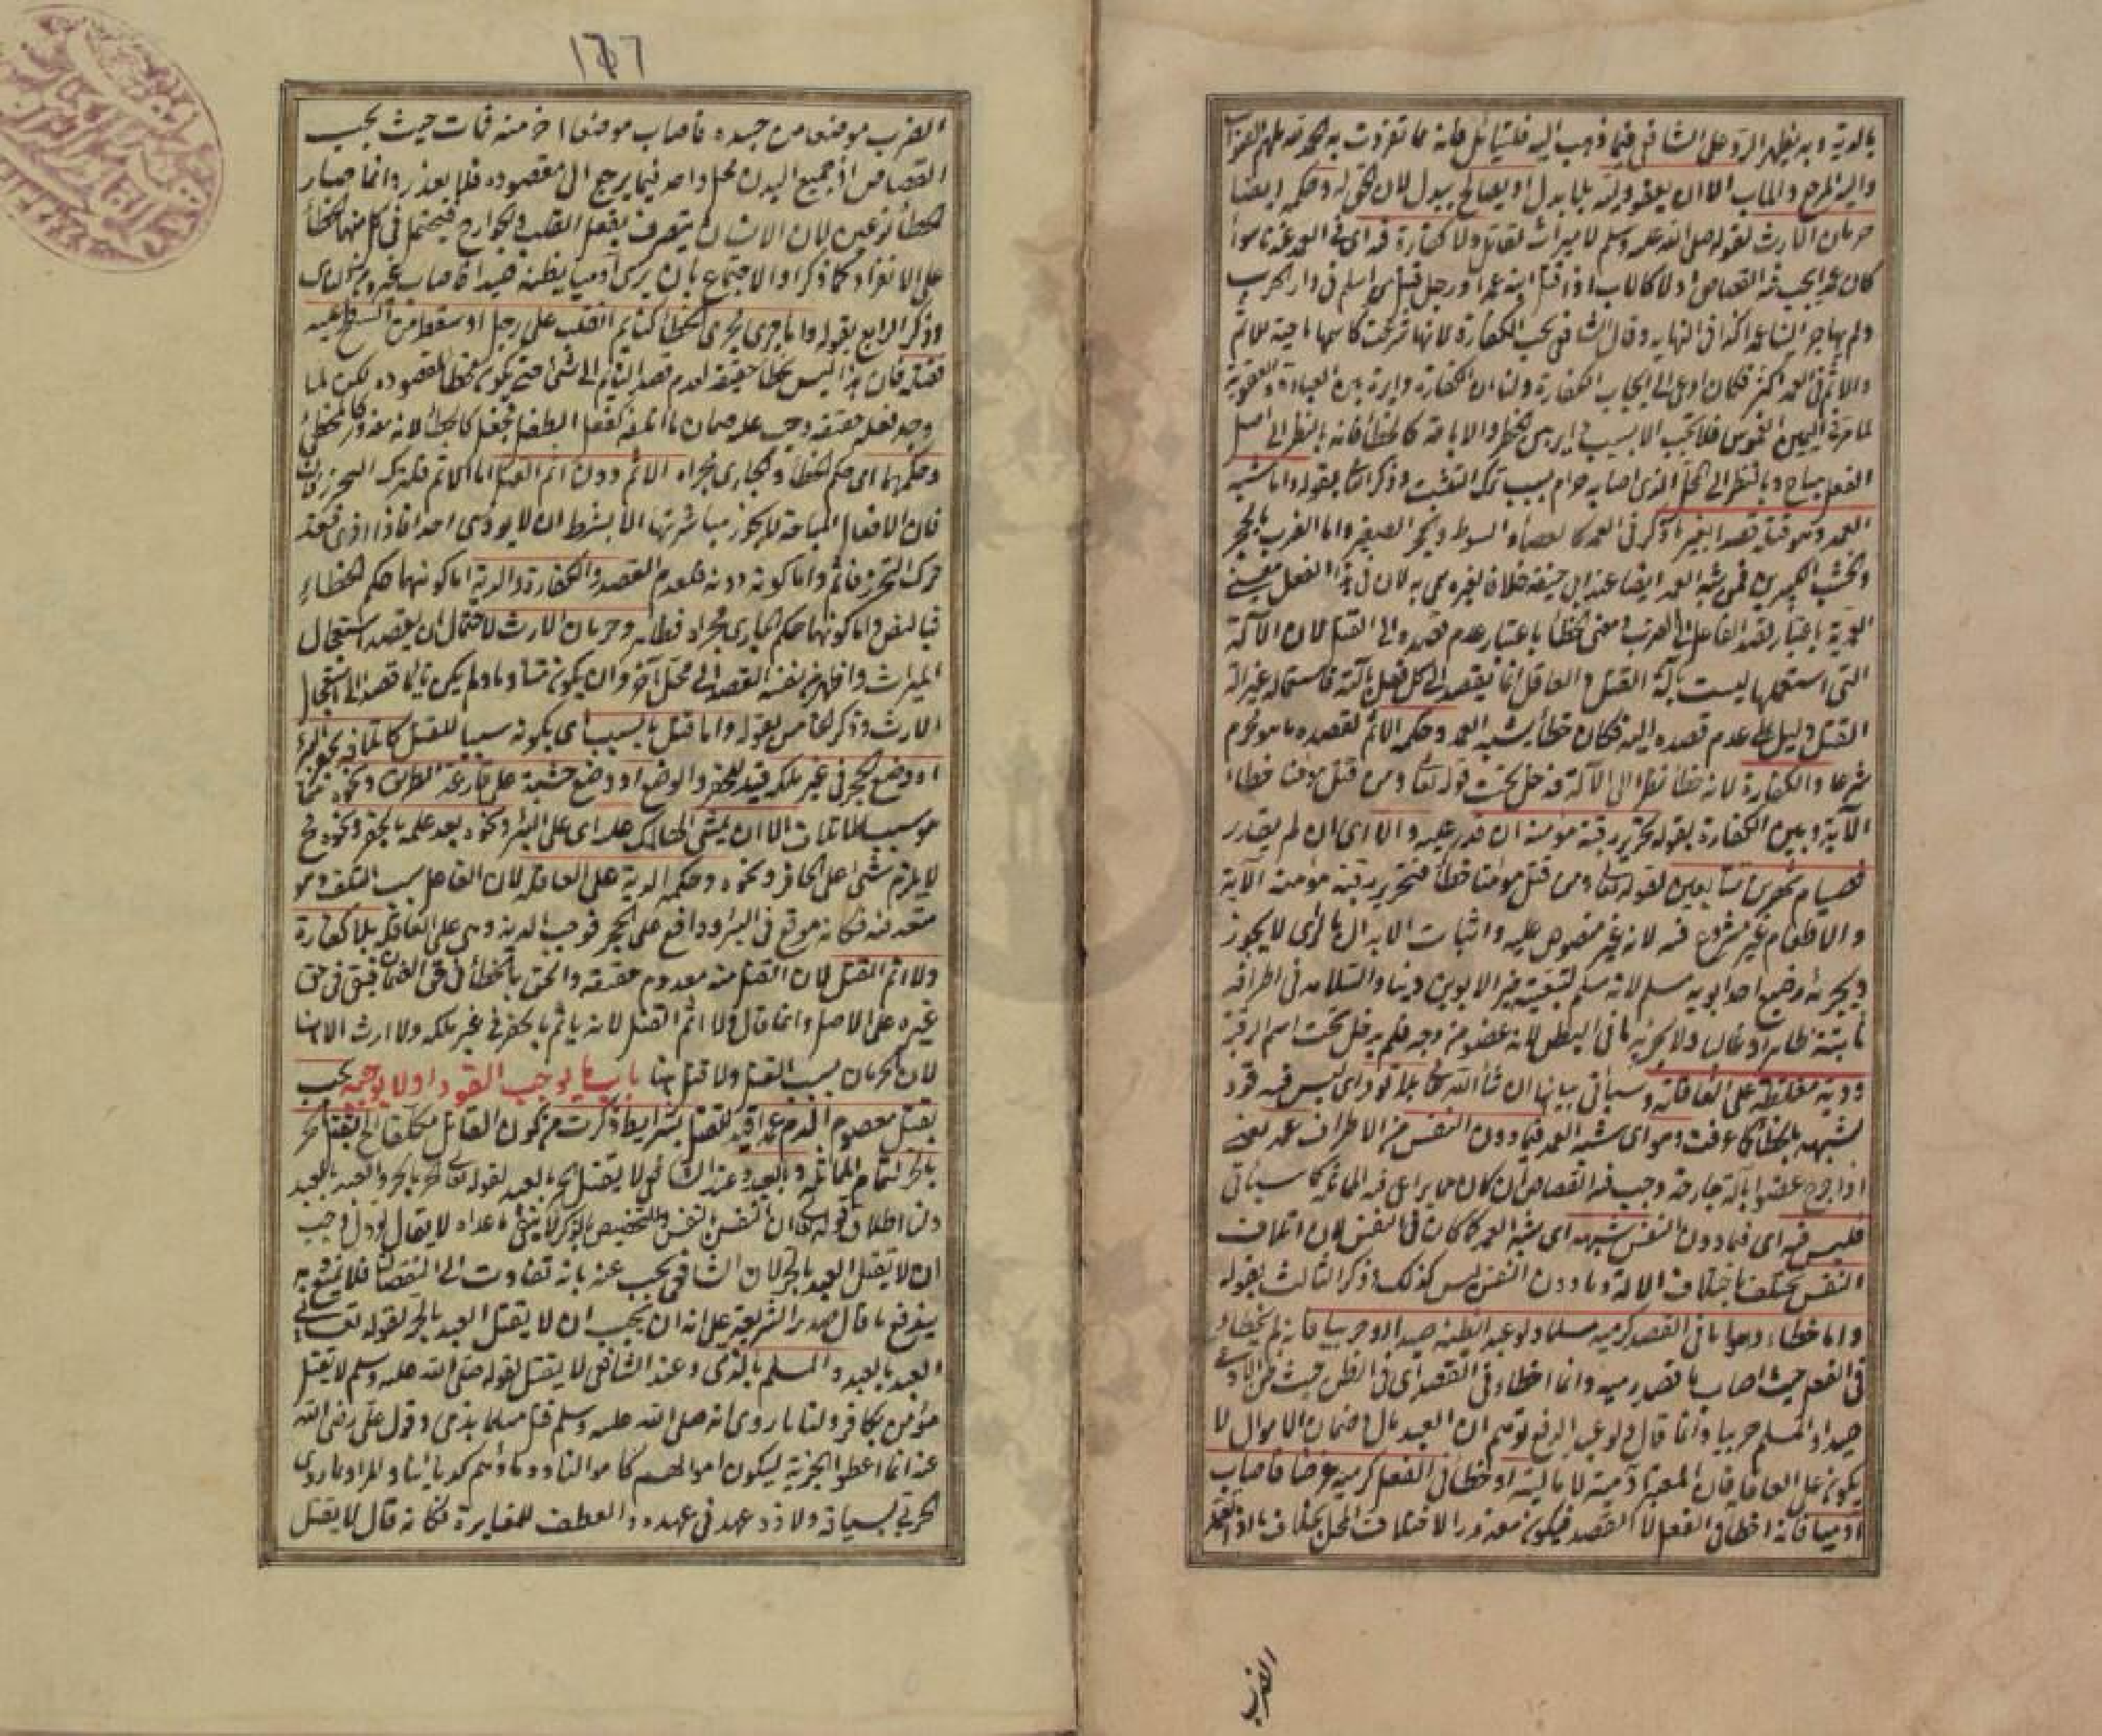 بالدية وبه يظهر الرد على الشافعي فيما ذهب اليه فليتأمل فانه مما تفردت به
واليه المرجع والمآب الا ان يعفو وليه بلا بدل او يصالح ببدل لان الحق له وحكمه ايضا
حرمان الارث لقوله صلى الله عليه وسلم لا ميراث لقاتل ولا كفارة فيه اى فى العمد عندنا سواء
كان عمدا يجب فيه القصاص او لا كالاب اذا قتل ابنه عمدا ورجل قتل من اسلم فى دار الحرب
ولم يهاجر الينا عمدا كذا فى النهايه وقال الشافعى تجب الكفارة لانها شرعت كاسمها ماحية للاثم
والاثم فى العمد اكثر فكان ادعى الى ايجاب الكفارة ولنا ان الكفارة دايرة بين العبادة والعقوبة
لما مر فى اليمين الغموس فلا تجب الا بسبب داير بين الحظر والاباحة كالخطأ فانه بالنظر الى اصل
الفعل مباح وبالنظر الى المحل الذى اصابه حرام بسبب ترك التثبت وذكر الثانى بقوله واما شبه
العمد وهو قتله قصدا بغير ما ذكر فى العمد كالعصا والسوط والحجر الصغير واما الضرب بالحجر
والخشب الكبيرين فمن شبه العمد ايضا عند ابى حنيفة خلافا لغيره سمى به لان فى هذا الفعل معنى
العمدية باعتبار قصد الفاعل الى الضرب ومعنى الخطأ باعتبار عدم قصده الى القتل لان الآلة
التى استعملها ليست بآلة القتل والعاقل انما يقصد الى كل فعل بآلته فاستعماله غير آلة
القتل دليل على عدم قصده اليه فكان خطأ يشبه العمد وحكمه الاثم لقصده ما هو محرم
شرعا والكفارة لانه خطأ نظرا الى الآلة فدخل تحت قوله تعالى ومن قتل مؤمنا خطاء
الآية وبين الكفارة بقوله تحرير رقبة مؤمنة ان قدر عليه والا اى ان لم يقدر
فصيام شهرين متتابعين لقوله تعالى ومن قتل مؤمنا خطأ فتحرير رقبة مؤمنة الآية
والاطعام غير مشروع فيه لانه غير منصوص عليه واثبات الابدال بالراى لا يجوز
ويجزئه رضيع احد ابويه مسلم لانه مسلم لتبعيته خير الابوين دينا والسلامة فى اطرافه
ثابتة ظاهرا وغالبا ولا يجزيه ما فى البطن لانه عضو من وجه فلم يدخل تحت اسم الرقبة
ودية مغلظة على العاقلة وسيأتى بيانها ان شاء الله تعالى بلا قود اى ليس فيه قود
لشبهه بالخطأ كما عرفت وهو اى شبه العمد فيما دون النفس من الاطراف عمد يعنى
اذا جرح عضوا بآلة جارحة وجب فيه القصاص ان كان مما يراعى فيه المماثلة كما سيأتى
فليس فيه اى فيما دون النفس شبهه اى شبه العمد كما كان فى النفس لان اتلاف
النفس يختلف باختلاف الالة وما دون النفس ليس كذلك وذكر الثالث بقوله
واما خطاء وهو اما فى القصد كرميه مسلما ولو عبدا يظنه صيدا او حربيا فانه لم يخطئ
فى الفعل حيث اصاب ما قصد رميه وانما اخطاء فى القصد اى فى الظن حيث ظن الآدمى
صيدا والمسلم حربيا وانما قال ولو عبدا لدفع توهم ان العبد مال وضمان الاموال لا
يكون على العاقلة فان المعتبر آدميته لا ماليته او خطأ فى الفعل كرميه غرضا فاصاب
آدميا فانه اخطأ فى الفعل لا القصد فيكون معذورا لاختلاف المحل بخلاف ما اذا تعمد
الضرب
١٦٦
الضرب موضعا من جسده فاصاب موضعا اخر منه فمات حيث يجب
القصاص اذ جميع البدن محل واحد فيما يرجع الى مقصوده فلا يعذر وانما صار
الخطأ نوعين لان الانسان يتصرف بفعل القلب والجوارح فيحتمل فى كل منهما الخطأ
على الانفراد كما ذكر او الاجتماع بان يرمى آدميا يظنه صيدا فاصاب غيره من الناس
وذكر الرابع بقوله واما جرى مجرى الخطأ كنائم انقلب على رجل او سقط من السطح عليه
فقتله فان هذا ليس بخطأ حقيقة لعدم قصد النائم الى شئ حتى يكون مخطأ لمقصوده لكن لما
وجد فعله حقيقة وجب عليه ضمان ما اتلفه كفعل الطفل فجعل كالخطأ لانه معذور كالمخطئ
وحكمهما اى حكم الخطأ والجارى مجراه الاثم دون اثم القتل اما الاثم فلتركه التحرز
فان الافعال المباحة لا يجوز مباشرتها الا بشرط ان لا يوذى احدا فاذا اذى فقد
ترك التحرز فاثم واما كونه دونه فلعدم القصد والكفارة والدية اما كونهما حكم الخطاء
فبالنص واما كونهما حكم الجارى مجراه فظاهر وحرمان الارث لاحتمال ان يقصد استعجال
الميراث واظهر من نفسه القصد الى محل آخر وان يكون متناوما ولم يكن نائما قصدا الى استعجال
الارث وذكر الخامس بقوله واما قتل بسبب اى بكونه سببا للقتل كاتلافه بحفر البئر
او وضع الحجر فى غير ملكه قيد للحفر والوضع او وضع خشبة على قارعة الطريق ونحوه مما
هو سبب للاتلاف الا ان يمشى الهالك عليه اى على البئر ونحوه بعد علمه بالحفر ونحوه فح
لا يلزم شئ على الحافر ونحوه وحكمه الدية على العاقلة لان الفاعل سبب التلف وهو
متعد فيه فكانه موقع فى البئر ودافع على الحجر فوجب الدية وهى على العاقلة بلا كفارة
ولا اثم القتل لان القتل منه معدوم حقيقة والحق بالخطأ فى حق الضمان فبقى فى حق
غيره على الاصل وانما قال ولا اثم القتل لانه ياثم بالحفر فى غير ملكه ولا ارث الا هنا
لان الحرمان بسبب القتل ولا قتل هنا باب ما يوجب القود او لا يوجبه يجب
بقتل معصوم الدم عمدا قيد للقتل بشرايط ذكرت من كون القاتل مكلفا الخ فيقتل الحر
بالحر لتمام المماثلة وبالعبد وعند الشافعى لا يقتل الحر بالعبد لقوله تعالى الحر بالحر والعبد بالعبد
ولنا اطلاق قوله تعالى ان النفس بالنفس والتخصيص بالذكر لا ينفى ما عداه لا يقال لو دل وجب
ان لا يقتل العبد بالحر لان الشافعى يجيب عنه بانه تفاوت الى النقصان فلا يمنع وبه
يندفع ما قال صدر الشريعة على انه ان يجب ان لا يقتل العبد بالحر لقوله تعالى
العبد بالعبد والمسلم بالذمى وعند الشافعى لا يقتل لقوله صلى الله عليه وسلم لا يقتل
مؤمن بكافر ولنا ما روى انه صلى الله عليه وسلم قتل مسلما بذمى وقول على رضى الله
عنه انما اعطوا الجزية ليكون اموالهم كاموالنا ودماؤهم كدمائنا والمراد بما روى
الحربى بسياقه ولا ذو عهد فى عهده والعطف للمغايرة فكانه قال لا يقتل